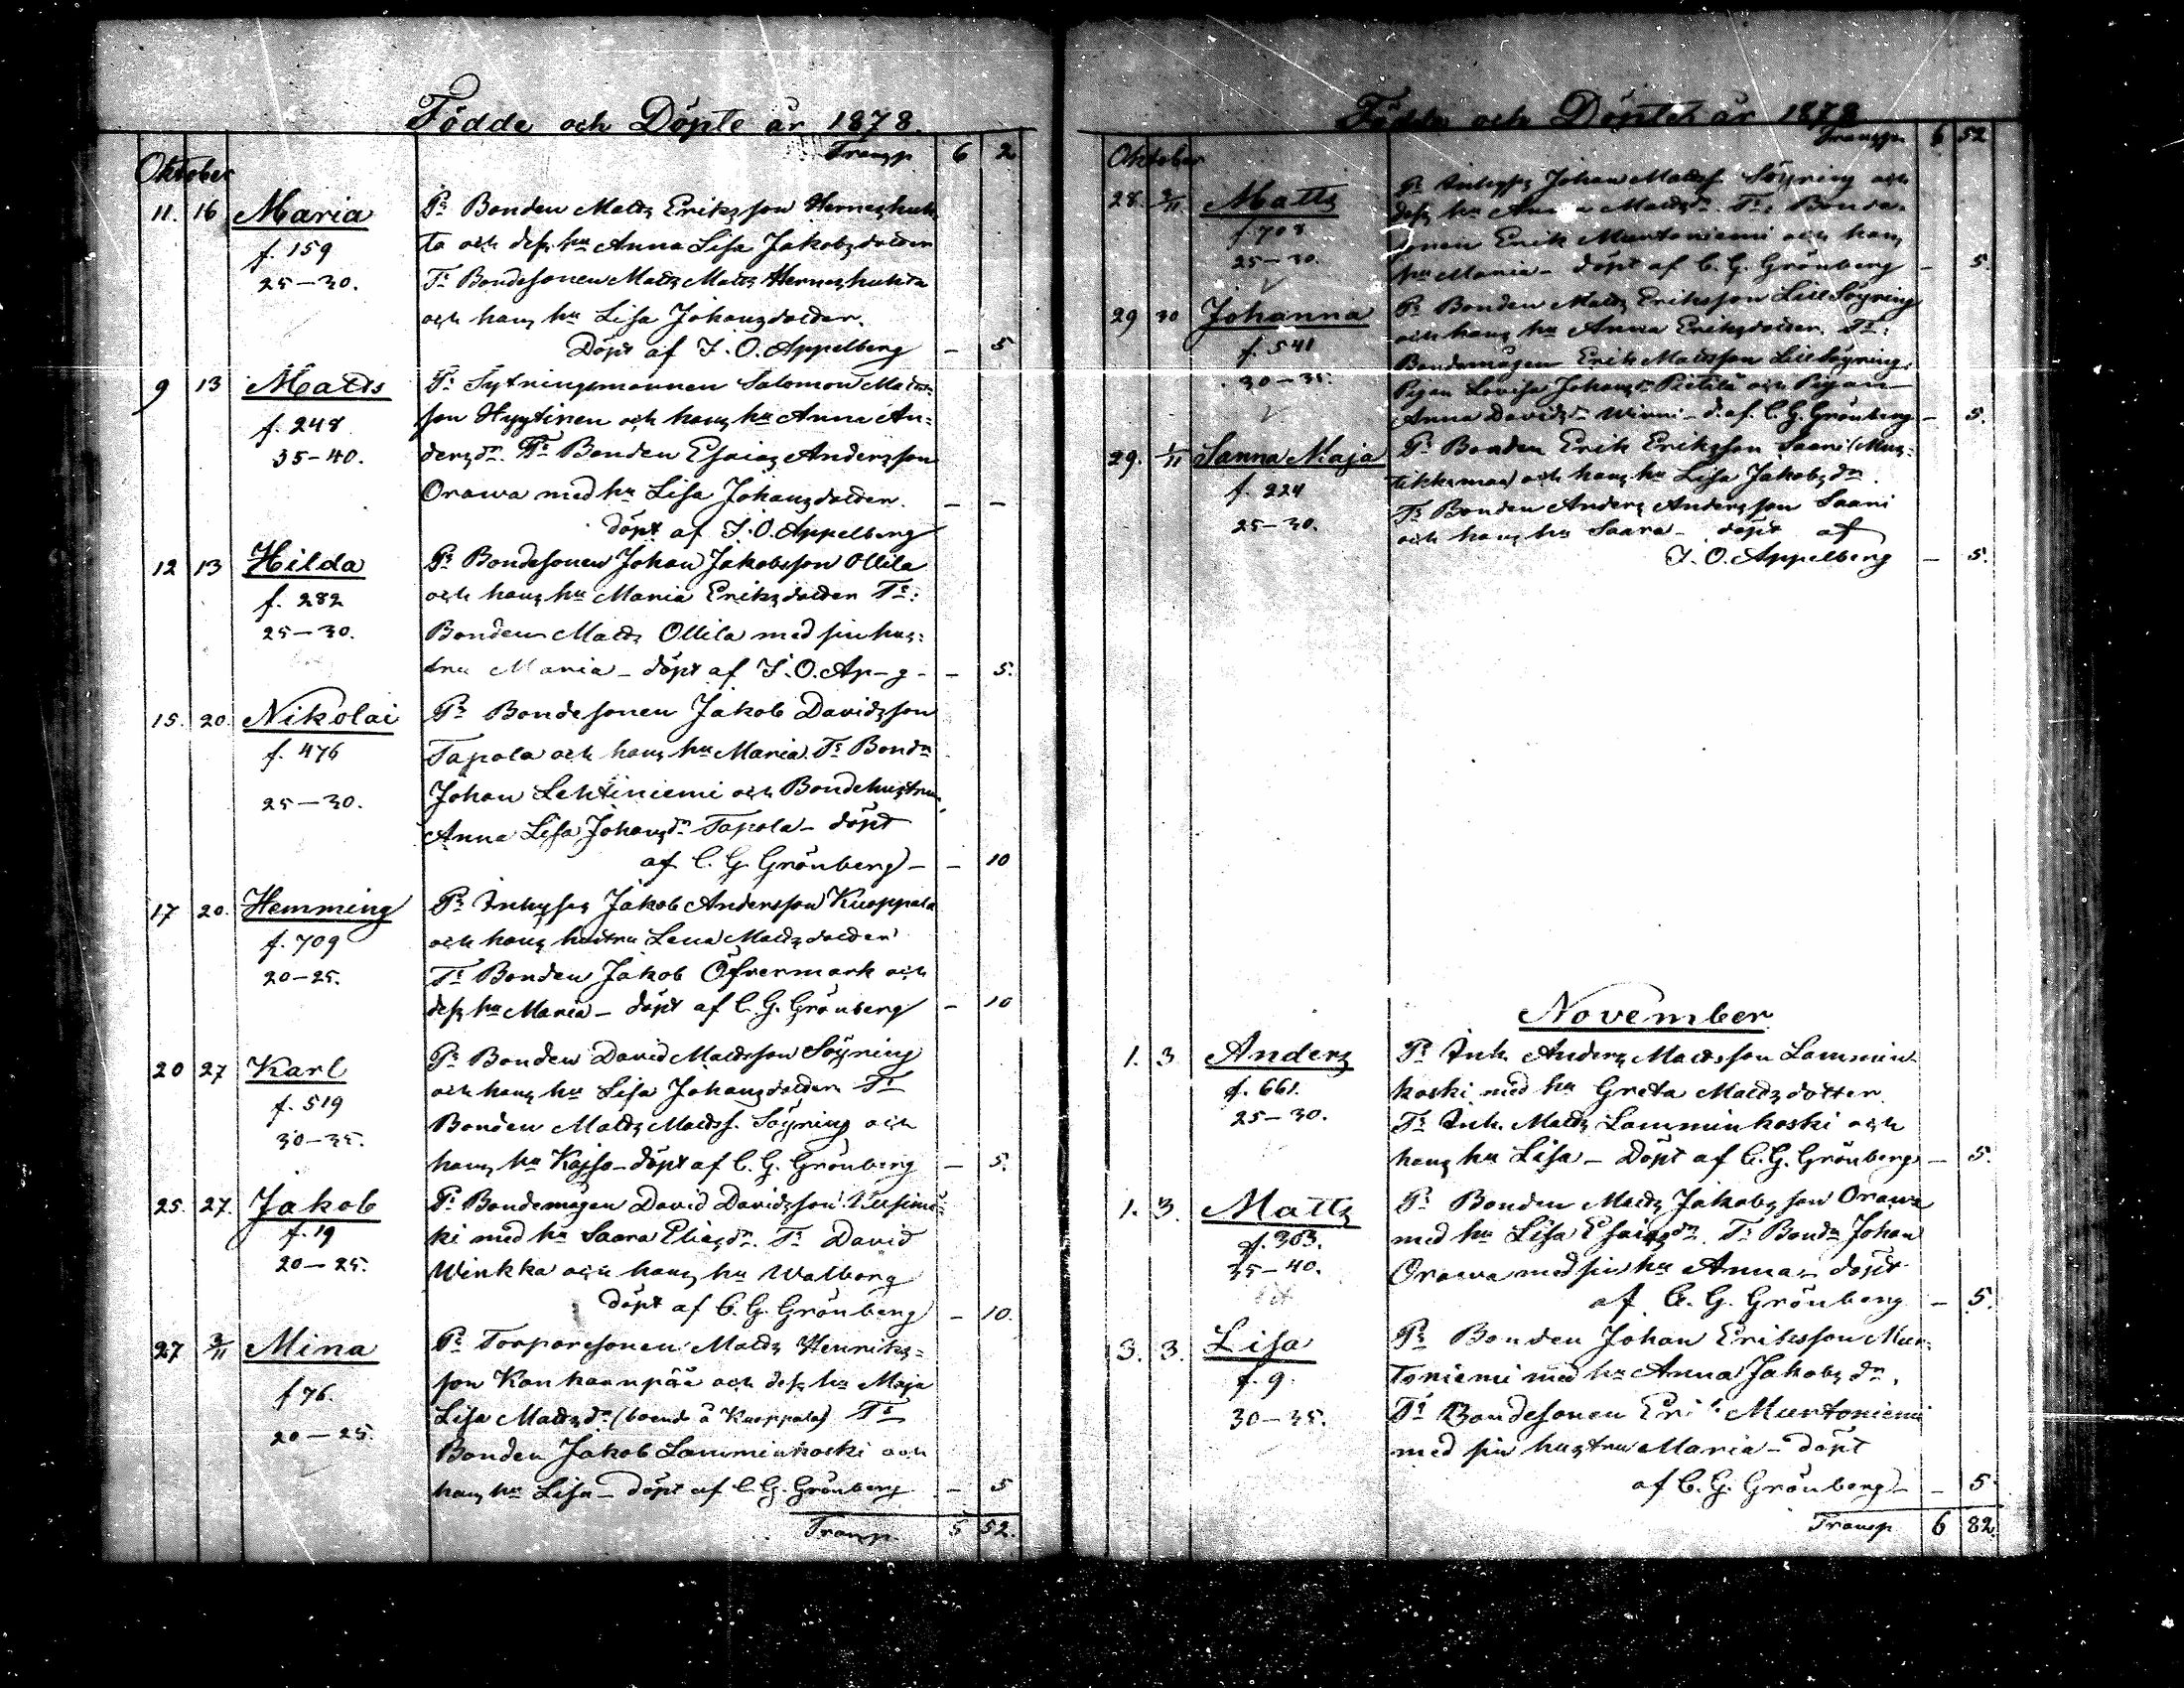 Födde och Döpte år 1878.
Transp 6 2
Oktober
11. 16 Maria Fr Bonden Matts Eriksson Herneshuh
f. 159 ta och dess hu Anna Lisa Jakobsdotter
25–30. Tr Bondesonen Matts Matts Herneshuhta
och hans hu Lisa Johansdotter.
Döpt af J. O. Appelberg – 5
9 13 Matts Fr Sytningsmannen Salomon Matts-
f. 248 son Hyytinen och hans hu Anna An-
35–40. dersdr. Tr Bonden Esaias Andersson
Orawa med hu Lisa Johansdotter. – –
döpt af J. O. Appelberg
12 13 Hilda Fr Bondesonen Johan Jakobsson Ollila
f. 282 och hans hu Maria Eriksdotter Tr:
25–30. Bonden Matts Ollila med sin hus-
tru Maria – döpt af J. O. Ap–g – – 5.
15. 20. Nikolai Fr Bondesonen Jakob Davidsson
f. 476 Tapola och hans hu Maria. Tr Bondn
25–30. Johan Lehtiniemi och Bondehustrun
Anna Lisa Johansdr Tapola – döpt
af C. G. Grönberg – – 10
17 20. Hemming Fr Inhyses Jakob Andersson Kuoppala
f. 709 och hans hustru Lena Mattsdotter
20–25. Tr Bonden Jakob Öfvermark och
dess hu Maria – döpt af C. G. Grönberg – 10
20 27 Karl Fr Bonden David Mattsson Söyring
f. 519 och hans hu Lisa Johansdotter Tr
30–35. Bonden Matts Mattss. Söyring och
hans hu Kajsa – döpt af C. G. Grönberg – 5.
25. 27. Jakob Fr Bondemågen David Davidsson Uusimä-
f. 19 ki med hu Saara Eliasdr. Tr David
20–25. Winkka och hans hu Walborg
döpt af C. G. Grönberg – 10.
27 3/11 Mina Fr Torparesonen Matts Henriks-
f 76. son Kankaanpää och dess hu Maja
Lisa Mattsdr (boende å Kuoppala) Tr
20–25. Bonden Jakob Lamminkoski och
hans hu Lisa – döpt af C. G. Grönberg – 5
Transp. 5 52.
Födde och Döpte år 1878
Transp. 6 52
Oktober
28. 3/11. Matts Fr Inhyses Johan Mattss. Söyring och
f. 708 dess hu Anna Mattsdr. Tr: Bonde-
25–30. sonen Erik Murtoniemi och hans
hu Maria – döpt af C. G. Grönberg – 5.
29 30 Johanna Fr Bonden Matts Eriksson Lill Söyring
f. 541 och hans hu Anna Eriksdotter. Tr:
30–35. Bondemågen Erik Mattsson Lill Söyring,
Pigan Lovisa Johansdr Pietilä och Pigan
Anna Davidsdr Winni – d. af. C. G. Grönberg – 5.
29. 1/11 Sanna Maja Fr Bonden Erik Eriksson Saari (Mus-
f. 224 tikkamaa) och hans hu Lisa Jakobsdr.
25–30. Tr Bonden Anders Andersson Saari
och hans hu Saara – döpt af
J. O. Appelberg – 5.
November
1. 3 Anders Fr Inh. Anders Mattsson Lammin-
f. 661. koski med hu Greta Mattsdotter.
25–30. Tr Inh. Matts Lamminkoski och
hans hu Lisa – Döpt af C. G. Grönberg – 5.
1. 3. Matts Fr Bonden Matts Jakobsson Orawa
f. 303. med hu Lisa Esaiasdr. Tr Bondn Johan
35–40. Orawa med sin hu Anna – döpt
af C. G. Grönberg – 5.
3. 3. Lisa Fr Bonden Johan Eriksson Mur-
f. 9. toniemi med hu Anna Jakobsdr.
30–35. Tr Bondesonen Erik Murtoniemi
med sin hustru Maria – döpt
af C. G. Grönberg – – 5
Transp 6 82.